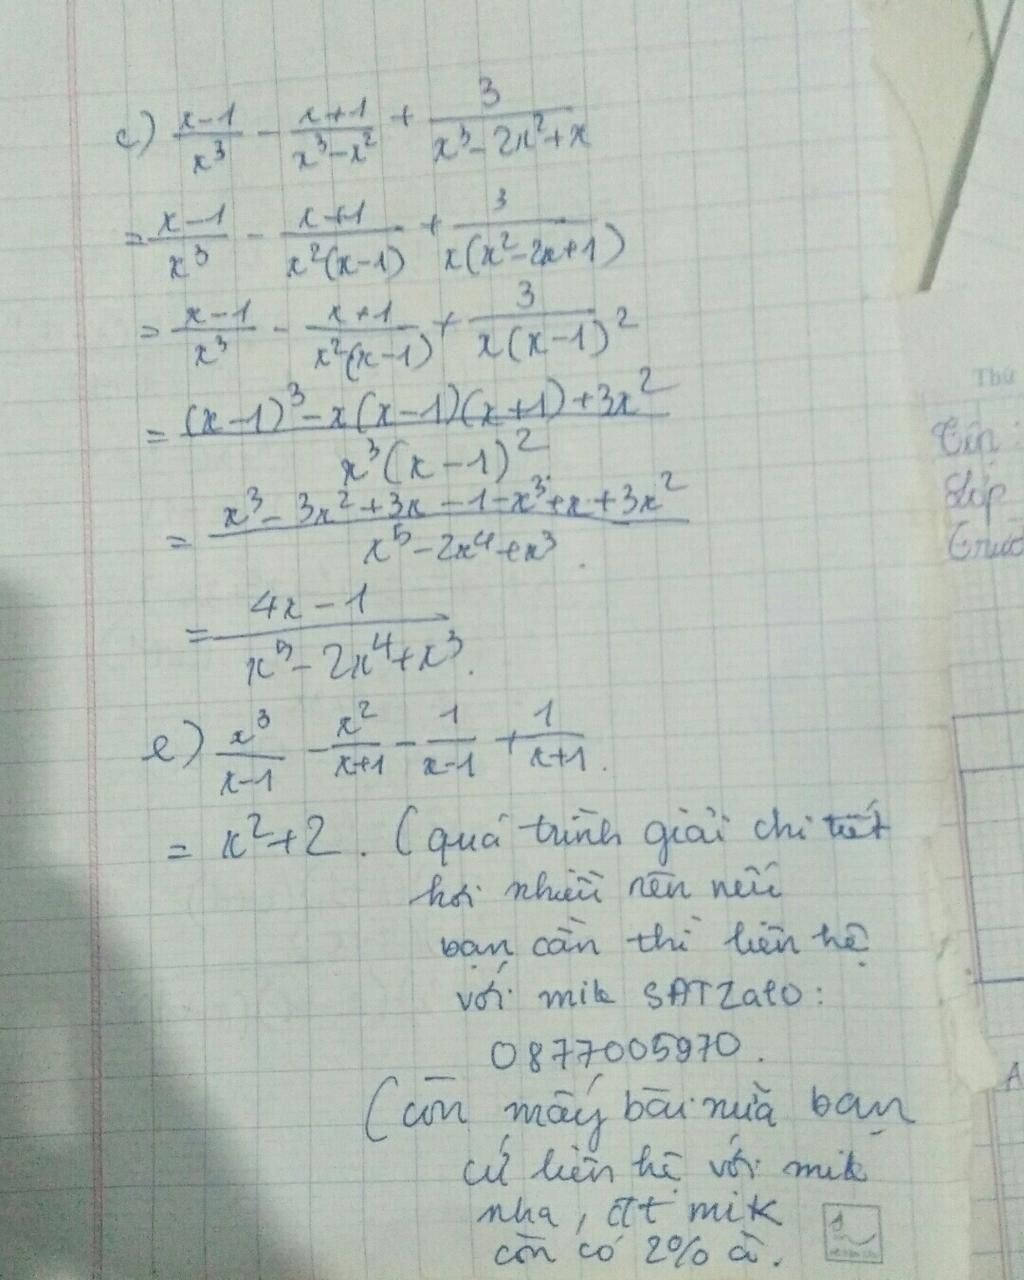 c) x-1/x³ - x+1/x³-x² + 3/x³-2x²+x
= x-1/x³ - x+1/x²(x-1) + 3/x(x²-2x+1)
= x-1/x³ - x+1/x²(x-1) + 3/x(x-1)²
= (x-1)³-x(x-1)(x+1)+3x²/x³(x-1)²
= x³-3x²+3x-1-x³+x+3x²/x⁵-2x⁴+x³.
= 4x-1/x⁵-2x⁴+x³.
e) x³/x-1 - x²/x+1 - 1/x-1 + 1/x+1.
= x²+2. (quá trình giải chi tiết
hơi nhiều nên nếu
bạn cần thì liên hệ
với mik SĐT Zalo:
0877005970.
(còn mấy bài nữa bạn
cứ liên hệ với mik
nha, đt mik
còn có 2% à.
Thứ
Tên:
Lớp
Trườ
A